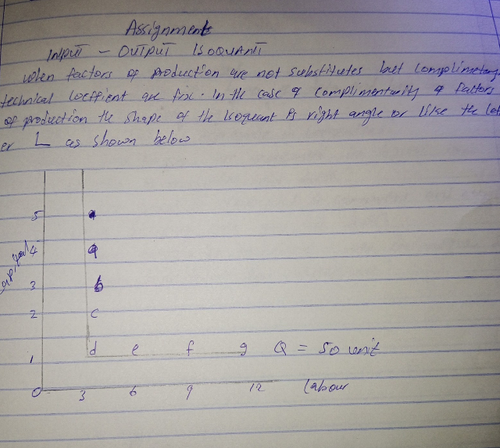 Assignment
INPUT - OUTPUT ISOQUANT
when factors of production are not substitutes but complimentary
technical coeffient are fix. In the case of complimentarity of factors
of production the shape of the isoquant is right angle or like the let
er L as shown below
5
4 a
3 b
2 c
1 d e f g Q = 50 unit
0 3 6 9 12 labour